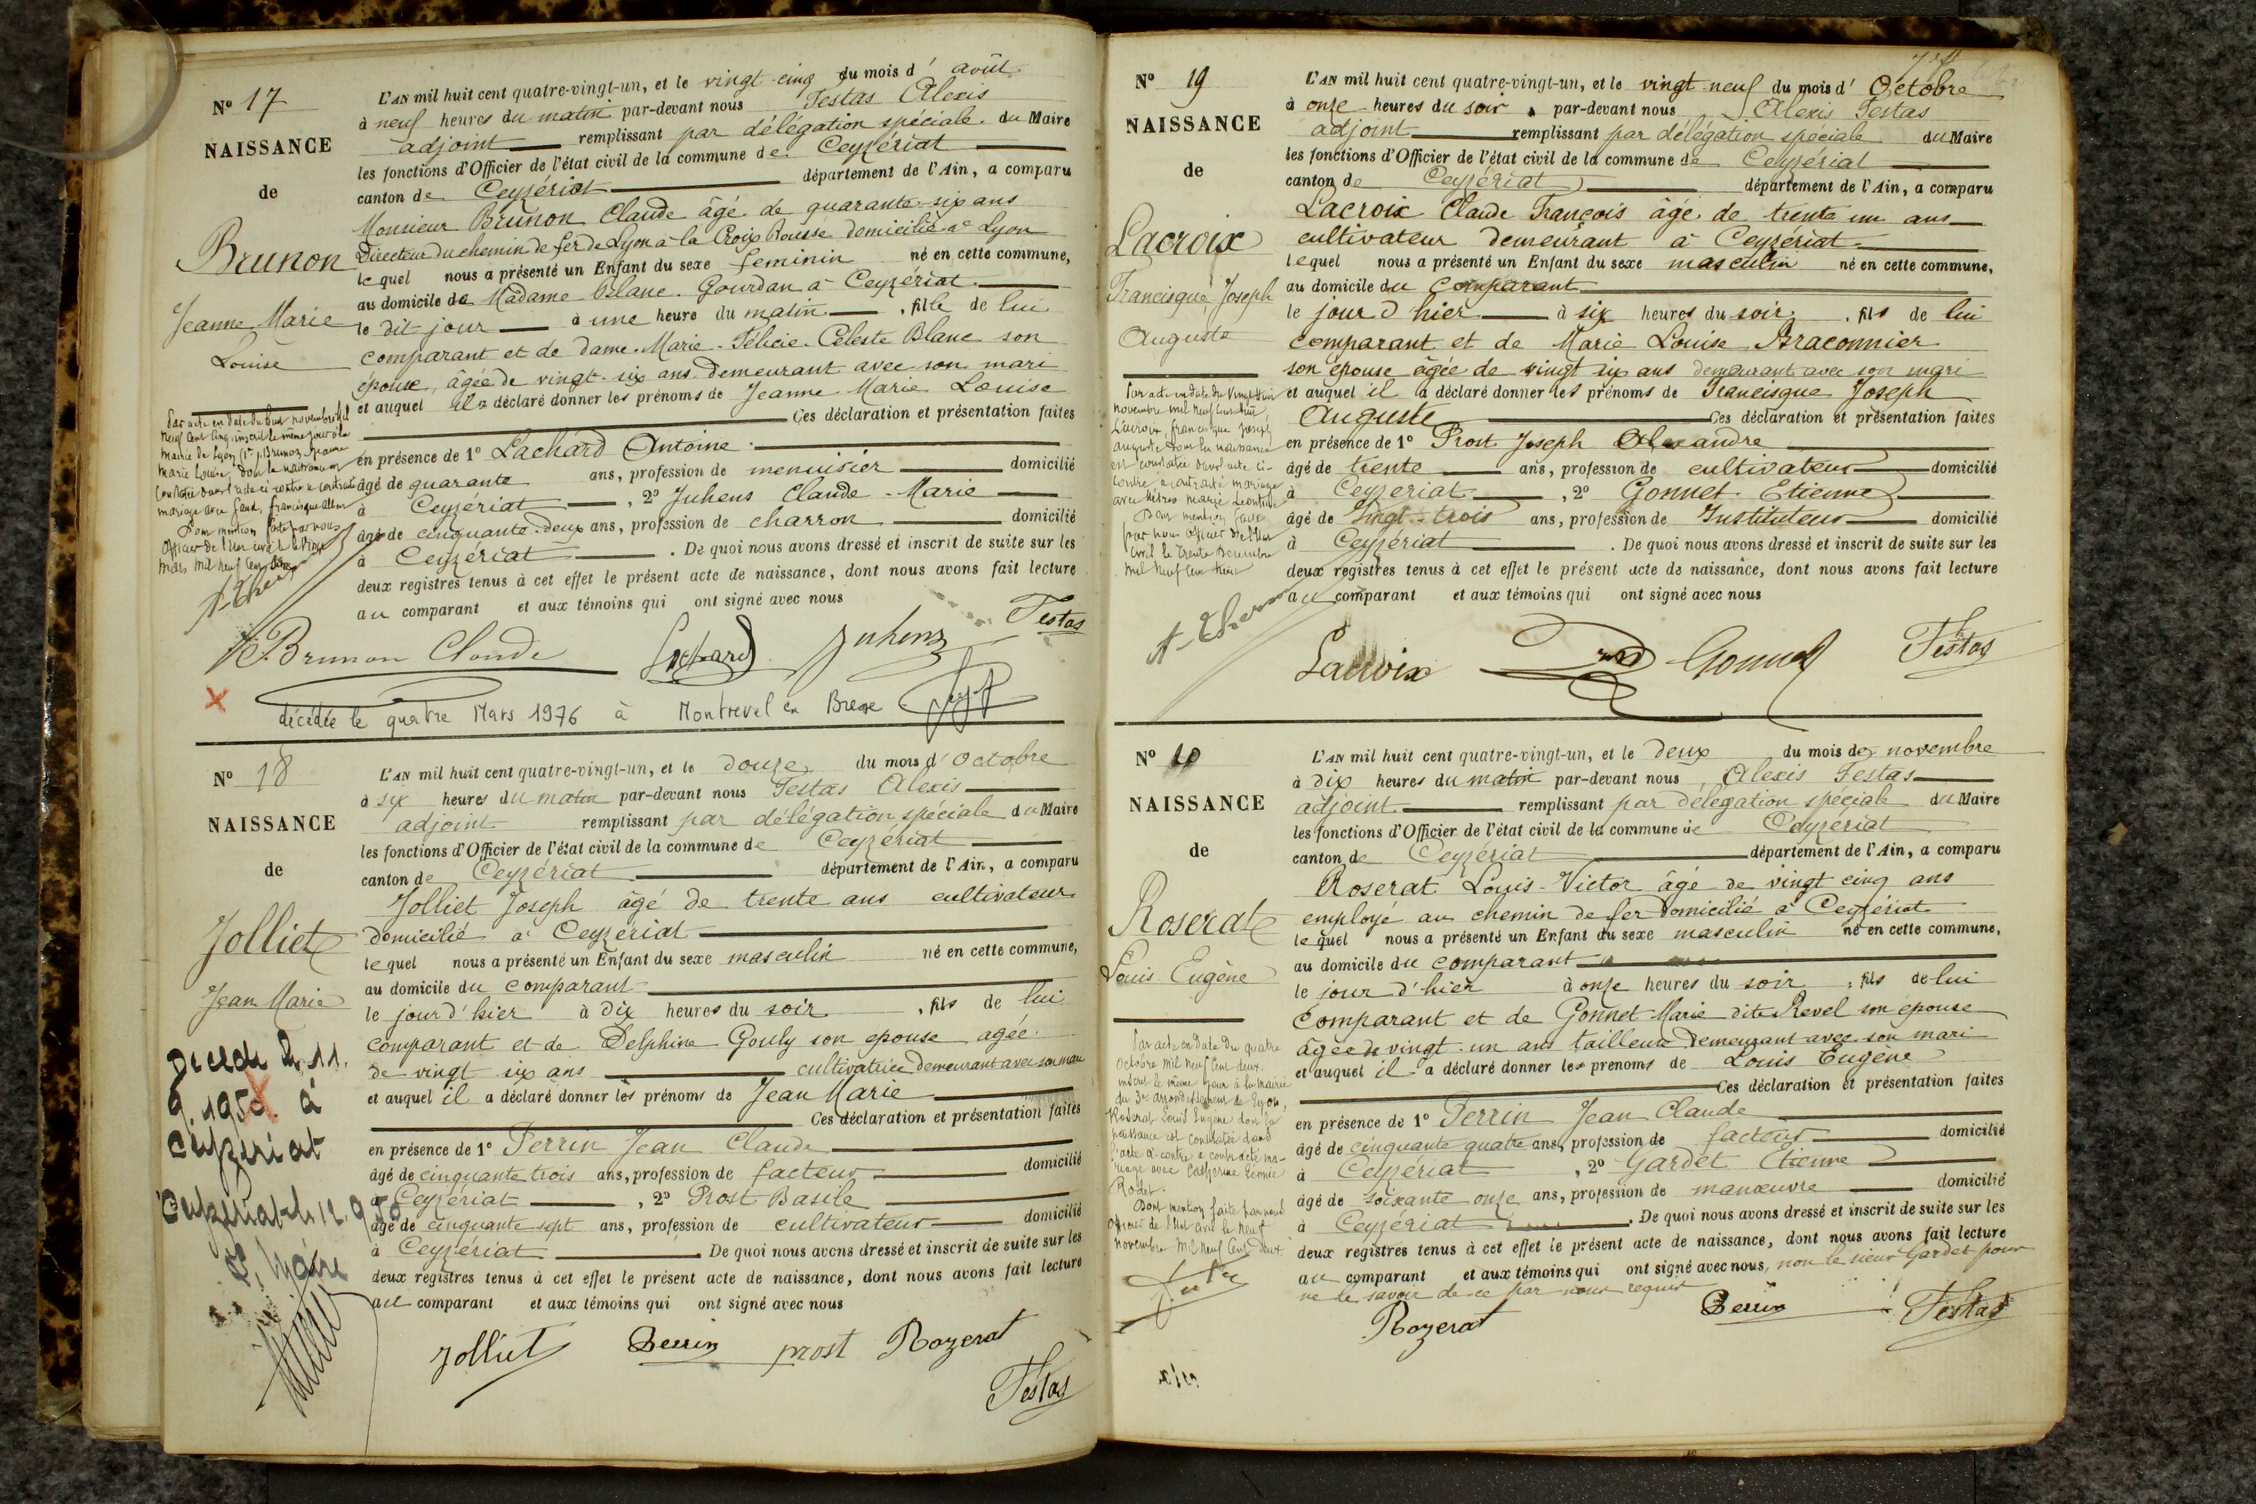 N° 17
NAISSANCE
de
Brunon
Jeanne Marie
Louise
L'AN mil huit cent quatre-vingt-un, et le vingt cinq du mois d' août
à neuf heures du matin par-devant nous Festas Alexis
adjoint remplissant par délégation spéciale du Maire
les fonctions d'Officier de l'état civil de la commune de Ceyzériat
canton de Ceyzériat département de l'Ain, a comparu
Monsieur Brunon Claude âgé de quarante-six ans
Directeur du chemin de fer de Lyon à la Croix Rousse domicilié à Lyon
lequel nous a présenté un Enfant du sexe feminin né en cette commune,
au domicile de Madame Blanc Gourdan à Ceyzériat
le dit jour à une heure du matin, fille de lui
comparant et de dame Marie Félicie Céleste Blanc son
épouse, âgée de vingt-six ans demeurant avec son mari
et auquel il a déclaré donner les prénoms de Jeanne Marie Louise
Ces déclaration et présentation faites
en présence de 1° Lachard Antoine
âgé de quarante ans, profession de menuisier domicilié
à Ceyzériat, 2° Juhens Claude-Marie
âgé de cinquante-deux ans, profession de charron domicilié
à Ceyzériat. De quoi nous avons dressé et inscrit de suite sur les
deux registres tenus à cet effet le présent acte de naissance, dont nous avons fait lecture
au comparant et aux témoins qui ont signé avec nous
Par acte en date du huit novembre mil
neuf cent cinq inscrit le même jour à la
mairie de Lyon Brunon Jeanne
Marie Louise dont la naissance est
constatée dans l'acte ci-contre a contracté
mariage avec francisque
Dont mention faite par nous
Officier de l'état civil le
mars mil neuf cent
Brunon Claude Lachard Juhens Festas
décédée le quatre Mars 1976 à Montrevel en Bresse
N° 18
NAISSANCE
de
Jolliet
Jean Marie
L'AN mil huit cent quatre-vingt-un, et le douze du mois d' octobre
à six heures du matin par-devant nous Festas Alexis
adjoint remplissant par délégation spéciale du Maire
les fonctions d'Officier de l'état civil de la commune de Ceyzériat
canton de Ceyzériat département de l'Ain, a comparu
Jolliet Joseph âgé de trente ans cultivateur
domicilié à Ceyzériat
lequel nous a présenté un Enfant du sexe masculin né en cette commune,
au domicile du comparant
le jour d'hier à dix heures du soir, fils de lui
comparant et de Delphine Gouly son epouse agée
de vingt six ans cultivatrice demeurant avec son mari
et auquel il a déclaré donner les prénoms de Jean Marie
Ces déclaration et présentation faites
en présence de 1° Perrin Jean Claude
âgé de cinquante trois ans, profession de facteur domicilié
à Ceyzériat, 2° Prost Basile
âgé de cinquante sept ans, profession de cultivateur domicilié
à Ceyzériat De quoi nous avons dressé et inscrit de suite sur les
deux registres tenus à cet effet le présent acte de naissance, dont nous avons fait lecture
au comparant et aux témoins qui ont signé avec nous
Décédé 11.
9. 1950 à
Ceyzeriat
Ceyzeriat le 12.9.50
Le Maire
Jolliet Perrin prost Rozerat
Festas
N° 19
NAISSANCE
de
Lacroix
Francisque Joseph
Auguste
L'AN mil huit cent quatre-vingt-un, et le vingt neuf du mois d' Octobre
à onze heures du soir par-devant nous Alexis Festas
adjoint remplissant par délégation spéciale du Maire
les fonctions d'Officier de l'état civil de la commune de Ceyzériat
canton de Ceyzériat département de l'Ain, a comparu
Lacroix Claude François âgé de trente un ans
cultivateur demeurant à Ceyzériat
lequel nous a présenté un Enfant du sexe masculin né en cette commune,
au domicile du comparant
le jour d hier à six heures du soir, fils de lui
comparant et de Marie Louise Braconnier
son épouse âgée de vingt six ans demeurant avec son mari
et auquel il a déclaré donner les prénoms de Francisque Joseph
Auguste Ces déclaration et présentation faites
en présence de 1° Prost Joseph Alexandre
âgé de trente ans, profession de cultivateur domicilié
à Ceyzeriat, 2° Gonnet Etienne
âgé de Vingt-trois ans, profession de Instituteur domicilié
à Ceyzériat. De quoi nous avons dressé et inscrit de suite sur les
deux registres tenus à cet effet le présent acte de naissance, dont nous avons fait lecture
au comparant et aux témoins qui ont signé avec nous
Par acte en date du Vingt
novembre mil neuf cent huit,
Lacroix francisque Joseph
auguste dont la naissance
est constatée dans l'acte ci-
contre a contracté mariage
avec Marie Léontine
Dont mention faite
par nous Officier de l'état
civil le trente Décembre
mil neuf cent huit
Lacroix Gonnet Festas
N° 20
NAISSANCE
de
Roserat
Louis Eugène
L'AN mil huit cent quatre-vingt-un, et le deux du mois de novembre
à dix heures du matin par-devant nous Alexis Festas
adjoint remplissant par délégation spéciale du Maire
les fonctions d'Officier de l'état civil de la commune de Ceyzériat
canton de Ceyzériat département de l'Ain, a comparu
Roserat Louis-Victor âgé de vingt cinq ans
employé au chemin de fer domicilié à Ceyzériat
lequel nous a présenté un Enfant du sexe masculin né en cette commune,
au domicile du comparant
le jour d'hier à onze heures du soir, fils de lui
comparant et de Gonnet Marie dite Revel son épouse
âgée de vingt-un ans tailleuse demeurant avec son mari
et auquel il a déclaré donner les prenoms de Louis Eugène
Ces déclaration et présentation faites
en présence de 1° Perrin Jean Claude
âgé de cinquante quatre ans, profession de facteur domicilié
à Ceyzériat, 2° Gardet Etienne
âgé de soixante onze ans, profession de manœuvre domicilié
à Ceyzériat. De quoi nous avons dressé et inscrit de suite sur les
deux registres tenus à cet effet le présent acte de naissance, dont nous avons fait lecture
au comparant et aux témoins qui ont signé avec nous, non le sieur Gardet pour
ne le savoir de ce par nous requis
Par acte en date du quatre
Octobre mil neuf cent deux
inscrit le même jour à la mairie
du 3e arrondissement de Lyon,
Roserat Louis Eugène dont la
naissance est constatée dans
l'acte ci-contre a contracté ma-
riage avec Catherine Léonie
Rodet.
Dont mention faite par nous
officier de l'état civil le neuf
novembre mil neuf cent deux
Rozerat Perrin Festas